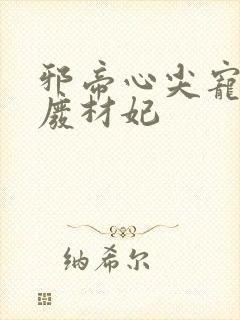 邪帝心尖宠
废材妃
纳希尔